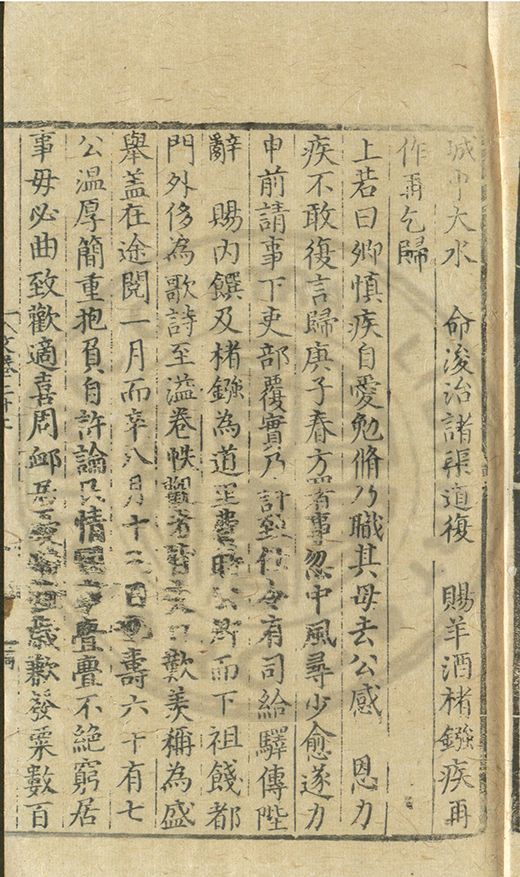 城中大水 命浚治諸渠道復 賜羊酒楮鏹疾再
作再乞歸
上若曰卿慎疾自愛勉脩乃職其毋去公感 恩力
疾不敢復言歸庚子春方署事忽中風尋少愈遂力
申前請事下吏部覆實乃許致仕令有司給驛傳陛
辭 賜內饌及楮鏹為道里費 而下祖餞都
門外侈為歌詩至溢卷帙觀者 歎羨稱為盛
舉蓋在途閱一月而卒八月十 日也壽六十有七
公溫厚簡重抱負自許論 情 亹亹不絕窮居
事毋必曲致歡適喜周卹 歲歉發粟數百